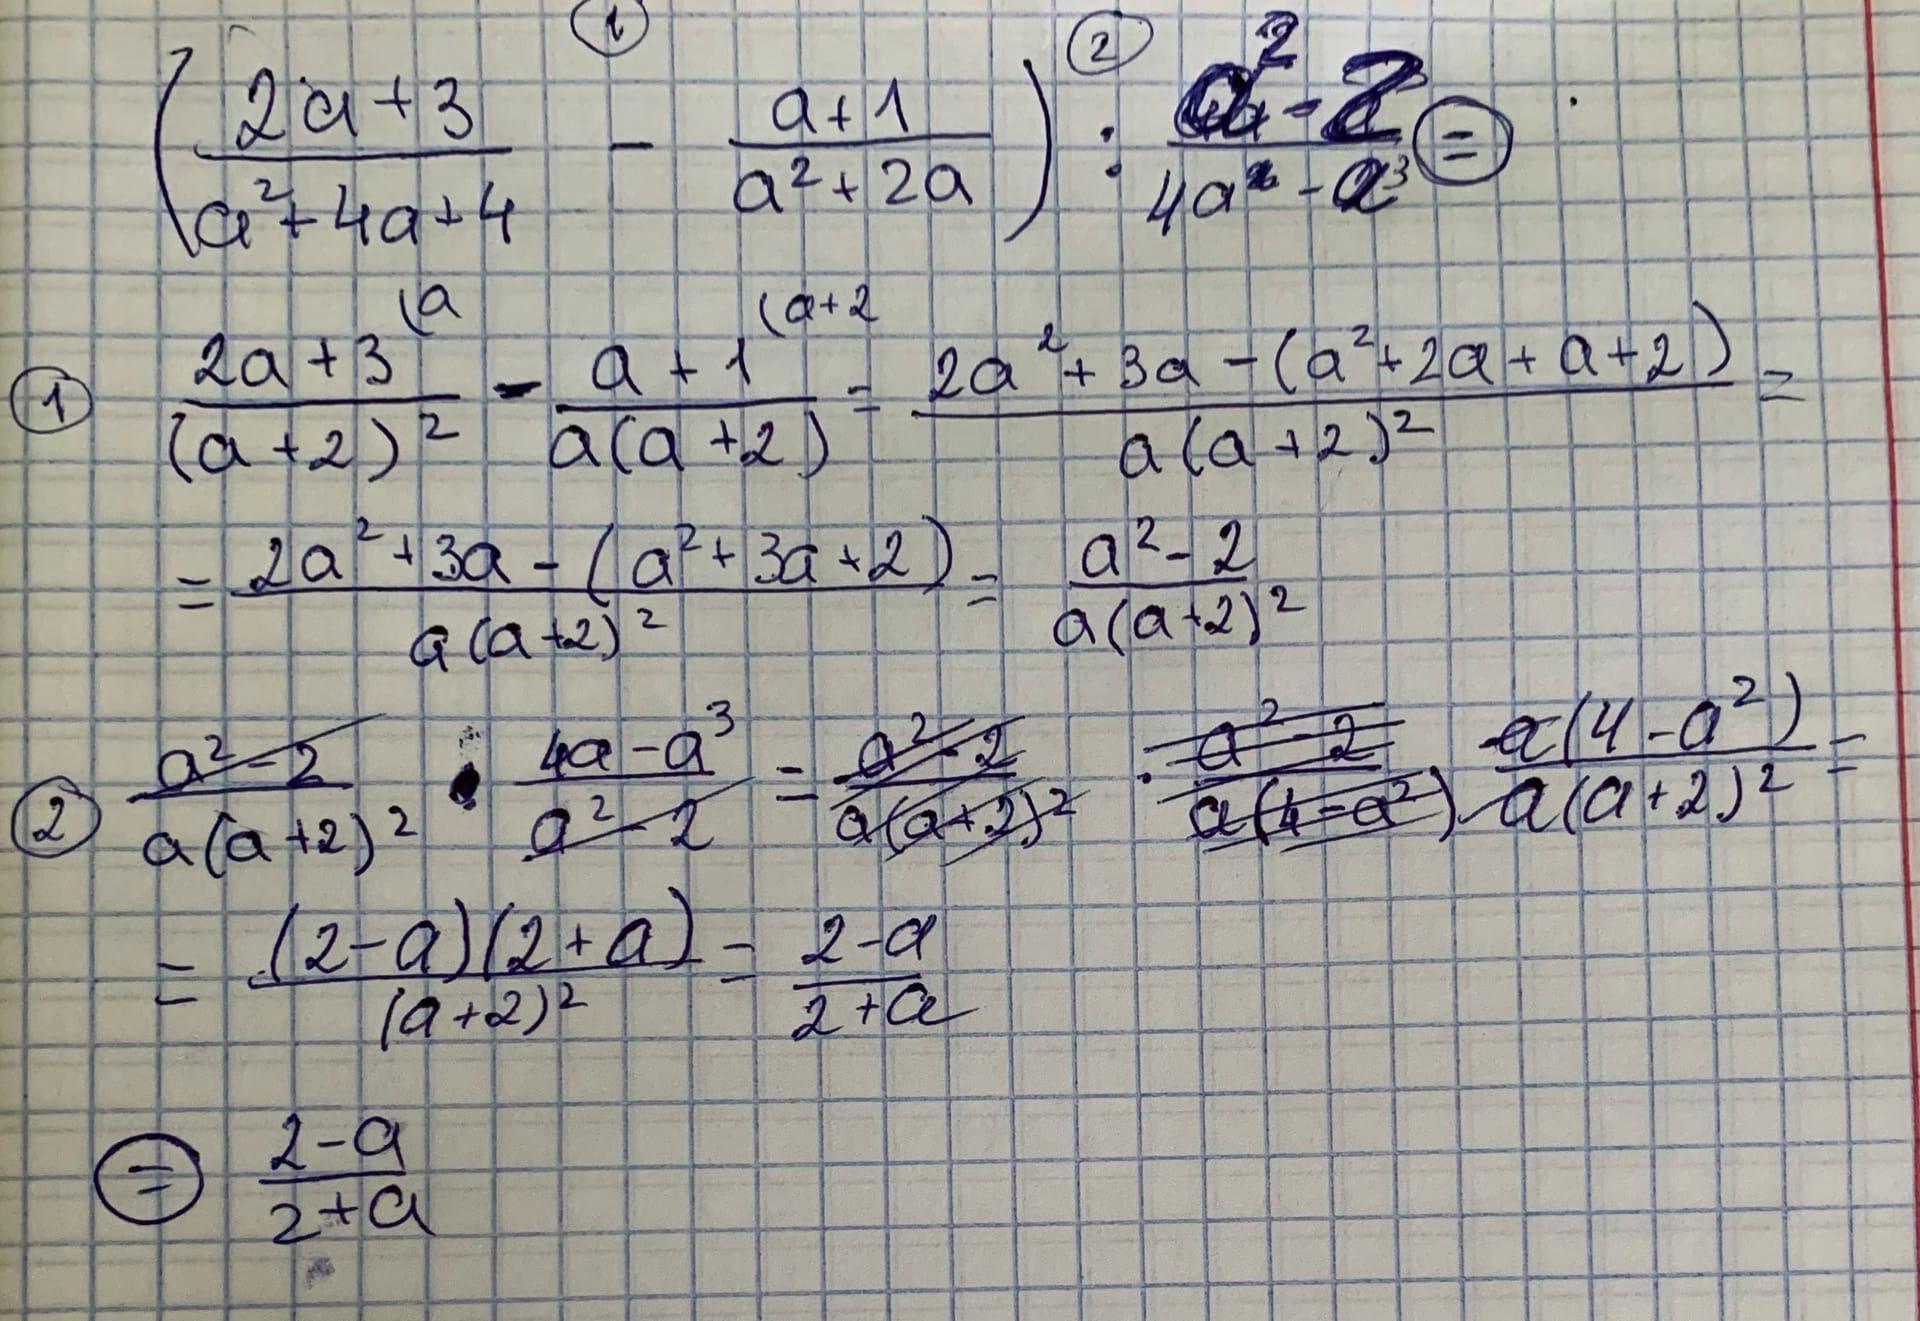 ① ②
(2a+3)/(a²+4a+4) - (a+1)/(a²+2a)) : (a²-2)/(4a-a³) ⊜
(a (a+2
① (2a+3)/(a+2)² - (a+1)/(a(a+2)) = (2a²+3a-(a²+2a+a+2))/(a(a+2)²) =
= (2a²+3a-(a²+3a+2))/(a(a+2)²) = (a²-2)/(a(a+2)²)
② (a²-2)/(a(a+2)²) · (4a-a³)/(a²-2) = (a²-2)/(a(a+2)²) · (a²-2)/(a(4-a²)) a(4-a²)/(a(a+2)²) =
= (2-a)(2+a)/(a+2)² = (2-a)/(2+a)
⊜ (2-a)/(2+a)